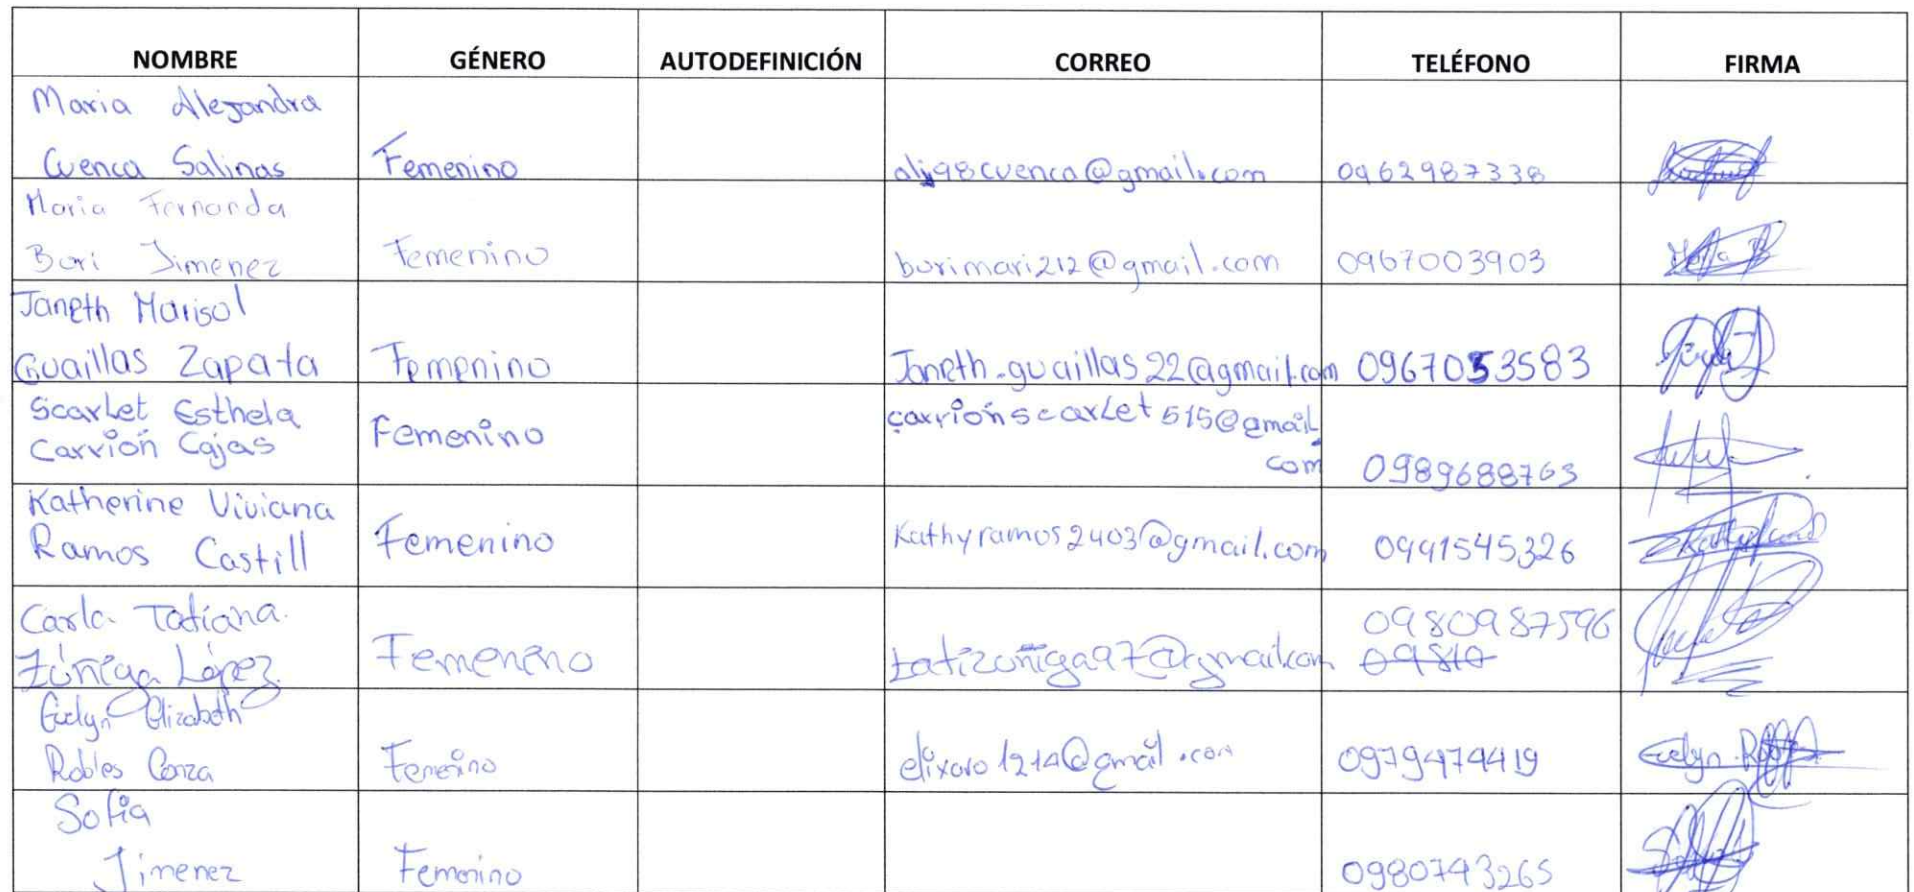 NOMBRE GÉNERO AUTODEFINICIÓN CORREO TELÉFONO FIRMA
Maria Alejandra
Cuenca Salinas Femenino ali98cuenca@gmail.com 0962987338
Maria Fernanda
Buri Jimenez Femenino burimari212@gmail.com 0967003903
Janeth Marisol
Guaillas Zapata Femenino Janeth.guaillas22@gmail.com 0967053583
Scarlet Esthela carrionscarlet515@gmail.
Carrión Cajas Femenino com 0989688763
Katherine Viviana
Ramos Castill Femenino Kathyramos2403@gmail.com 0991545326
Carla Tatiana 0980987596
Zúñiga López Femenino tatizuñiga97@gmail.com 09810
Evelyn Elizabeth
Robles Conza Femenino elixaro1214@gmail.com 0979474419 Evelyn
Sofia
Jimenez Femenino 0980743265